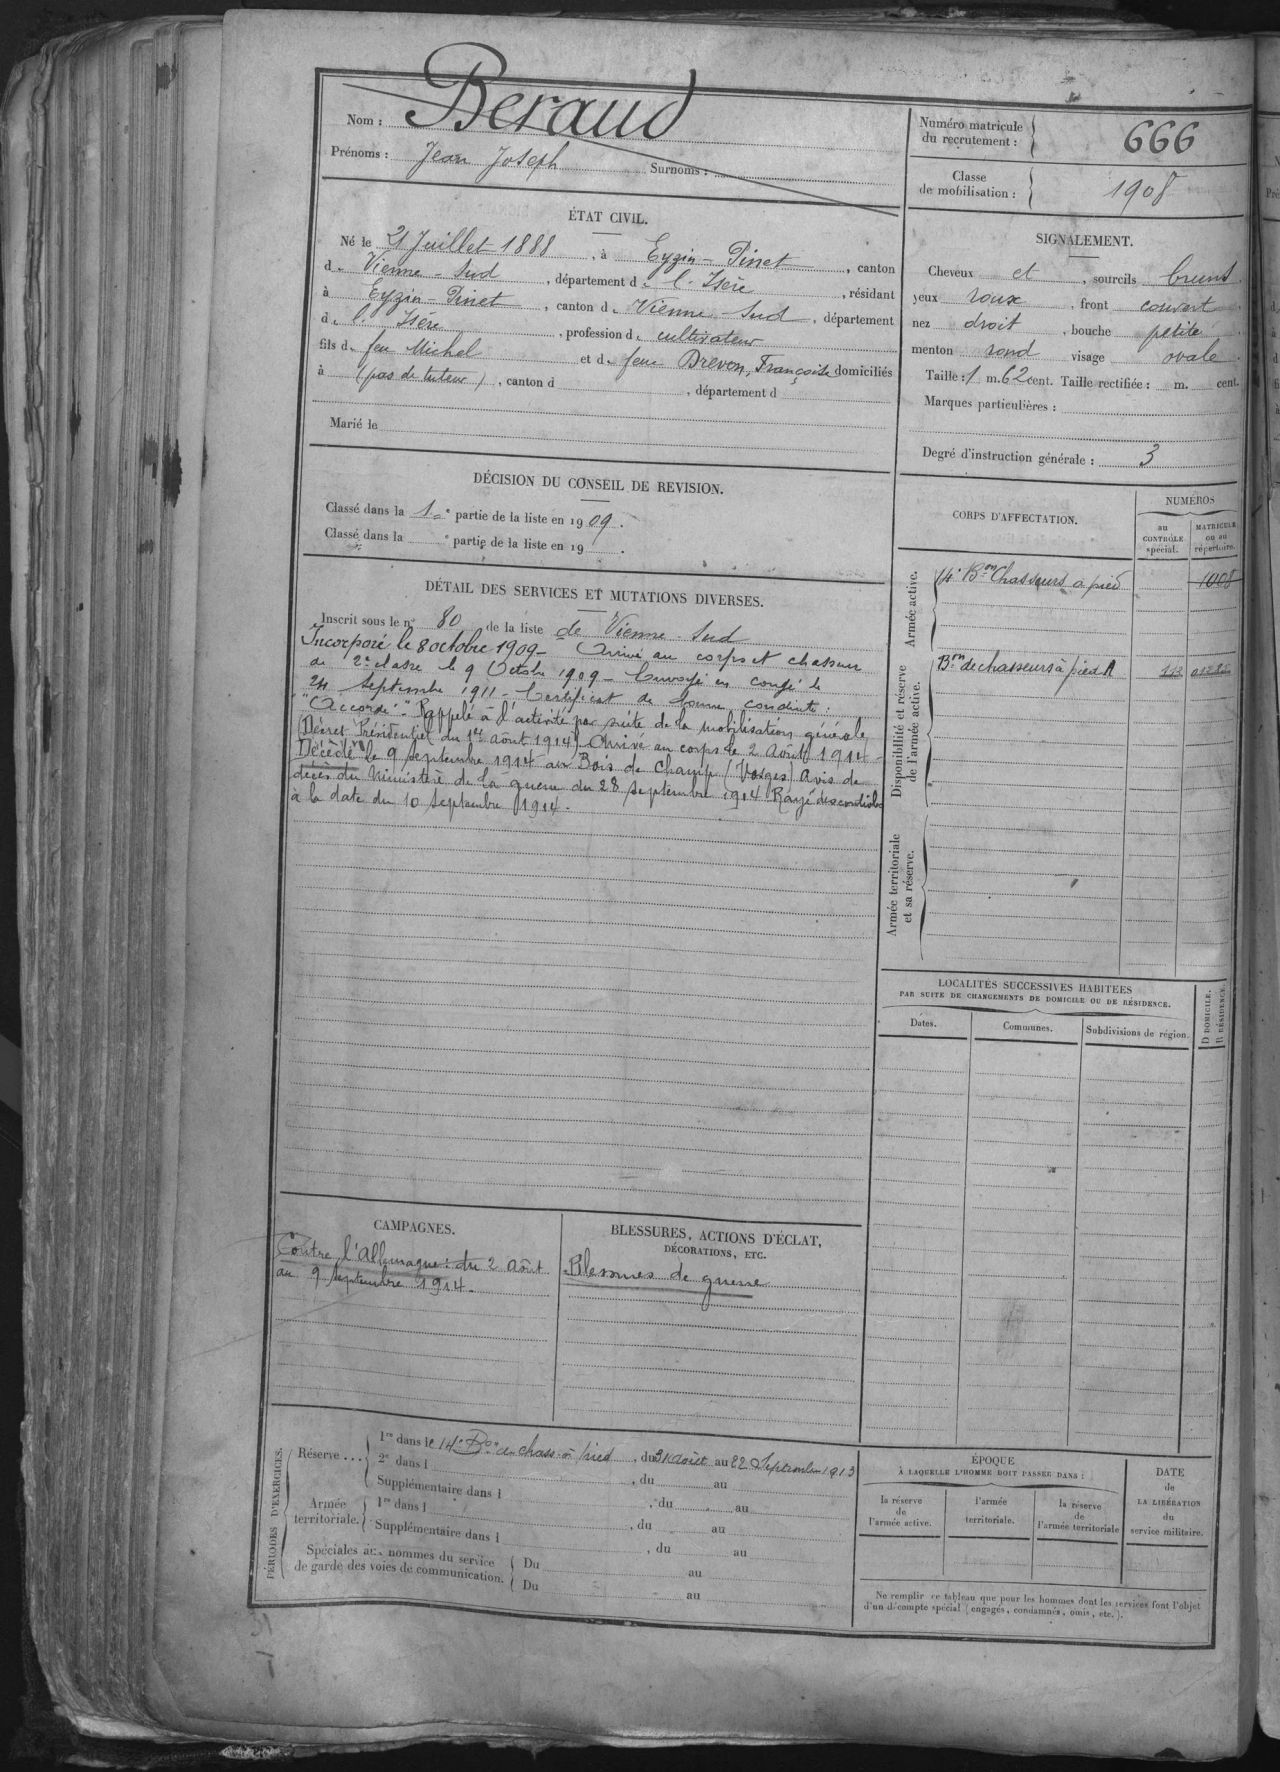 Nom : Beraud
Prénoms : Jean Joseph Surnoms :
Numéro matricule du recrutement : 666
Classe de mobilisation : 1908
ÉTAT CIVIL.
Né le 21 Juillet 1888, à Eyzin-Pinet, canton
de Vienne-Sud, département de l'Isère, résidant
à Eyzin-Pinet, canton de Vienne-Sud, département
de l'Isère, profession de cultivateur
fils de feu Michel et de feue Brevon, Françoise domiciliés
à (pas de tuteur), canton d , département d
Marié le
SIGNALEMENT.
Cheveux et , sourcils bruns
yeux roux , front couvert
nez droit , bouche petite
menton rond visage ovale.
Taille : 1 m. 62 cent. Taille rectifiée : m. cent.
Marques particulières :
Degré d'instruction générale : 3
DÉCISION DU CONSEIL DE REVISION.
Classé dans la 1re partie de la liste en 1909.
Classé dans la e partie de la liste en 19 .
DÉTAIL DES SERVICES ET MUTATIONS DIVERSES.
Inscrit sous le n° 80 de la liste de Vienne-Sud
Incorporé le 8 octobre 1909 - Arrivé au corps et chasseur
de 2e classe le 9 Octobre 1909 - Envoyé en congé le
24 Septembre 1911 - Certificat de bonne conduite :
"Accordé". Rappelé à l'activité par suite de la mobilisation générale
(Décret Présidentiel du 1er août 1914) Arrivé au corps le 2 Août 1914 -
Décédé le 9 septembre 1914 au Bois de Champ (Vosges) Avis de
décès du Ministère de la guerre du 28 septembre 1914. Rayé des contrôles
à la date du 10 Septembre 1914.
CORPS D'AFFECTATION.
NUMÉROS
au CONTRÔLE spécial.
MATRICULE ou au répertoire.
Armée active.
14e Bon Chasseurs à pied 1008
Disponibilité et réserve de l'armée active.
Bon de chasseurs à pied A 113
Armée territoriale et sa réserve.
LOCALITÉS SUCCESSIVES HABITÉES
PAR SUITE DE CHANGEMENTS DE DOMICILE OU DE RÉSIDENCE.
Dates.
Communes.
Subdivisions de région.
D DOMICILE.
R RÉSIDENCE.
CAMPAGNES.
Contre l'Allemagne : du 2 Août
au 9 Septembre 1914.
BLESSURES, ACTIONS D'ÉCLAT,
DÉCORATIONS, ETC.
Blessures de guerre
PÉRIODES D'EXERCICES.
Réserve ...
1re dans le 14e Bon de chass. à pied, du 31 août au 22 Septembre 1913
2e dans l , du au
Supplémentaire dans l , du au
Armée territoriale.
1re dans l , du au
Supplémentaire dans l , du au
Spéciales aux hommes du service
de garde des voies de communication.
Du au
Du au
ÉPOQUE
À LAQUELLE L'HOMME DOIT PASSER DANS :
la réserve de l'armée active.
l'armée territoriale.
la réserve de l'armée territoriale
DATE de LA LIBÉRATION du service militaire.
Ne remplir ce tableau que pour les hommes dont les services font l'objet
d'un décompte spécial (engagés, condamnés, omis, etc.).